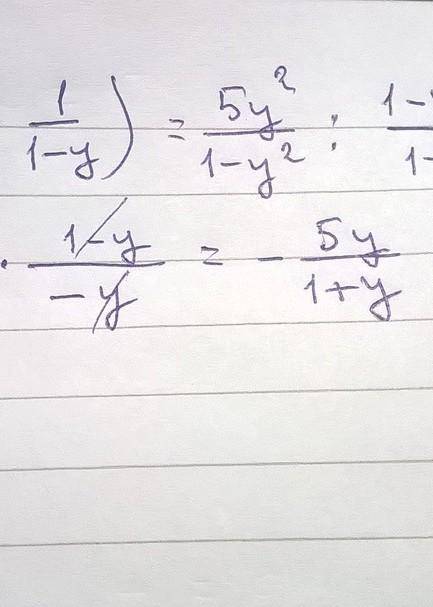 1/(1-y)) = 5y²/(1-y²) : 1-/1-
· (1-y)/(-y) = - 5y/(1+y)